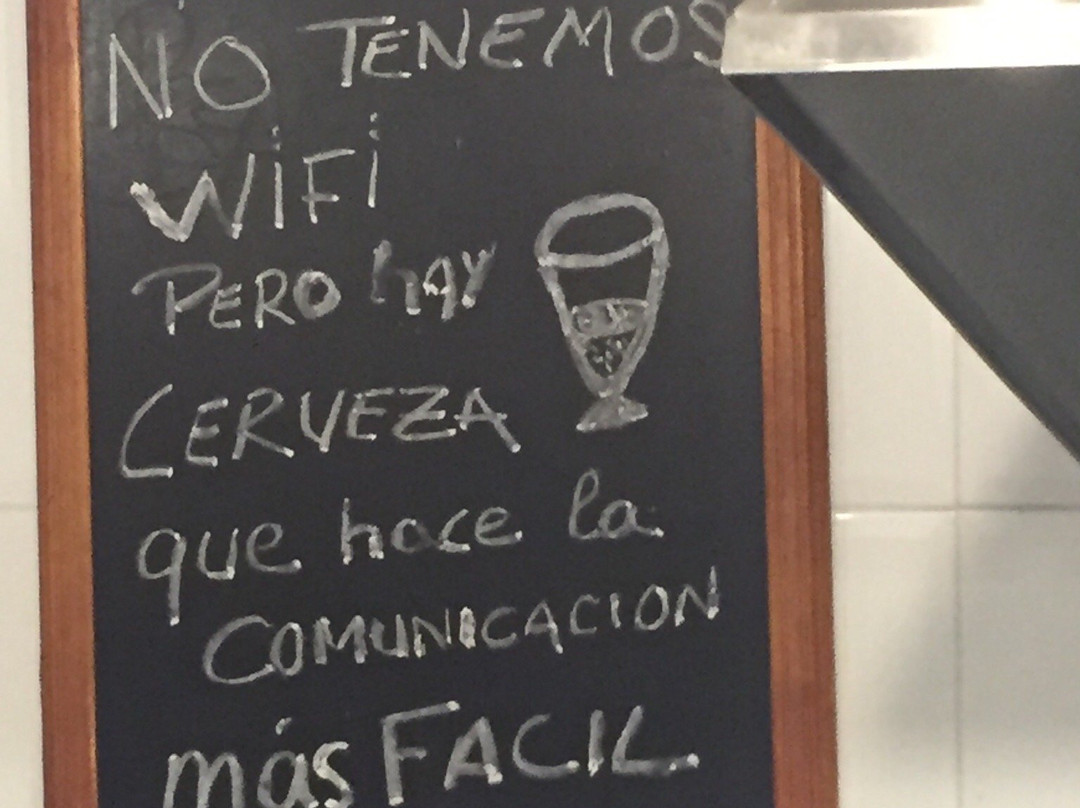 NO TENEMOS
WiFi
PERO hay
CERVEZA
que hace la
COMUNICACION
más FACIL.